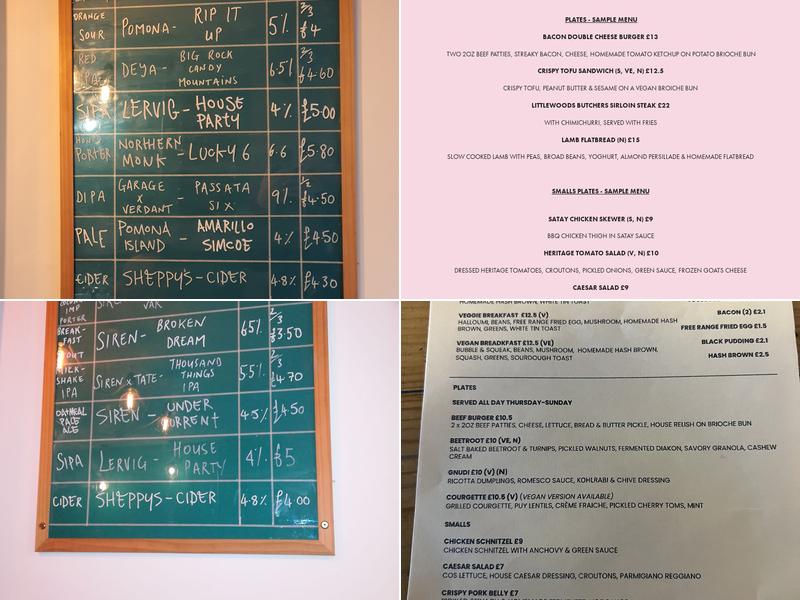 ORANGE SOUR POMONA - RIP IT UP 5% 2/3 £4
RED DEYA - BIG ROCK CANDY MOUNTAINS 6.5% 2/3 £4.60
SIPA LERVIG - HOUSE PARTY 4% £5.00
PORTER NORTHERN MONK - LUCKY 6 6.6 £5.80
DIPA GARAGE X VERDANT - PASSATA SIX 9% 1/2 £4.50
PALE POMONA ISLAND - AMARILLO SIMCOE 4% £4.50
CIDER SHEPPY'S - CIDER 4.8% £4.30
PLATES - SAMPLE MENU
BACON DOUBLE CHEESE BURGER £13
TWO 2OZ BEEF PATTIES, STREAKY BACON, CHEESE, HOMEMADE TOMATO KETCHUP ON POTATO BRIOCHE BUN
CRISPY TOFU SANDWICH (S, VE, N) £12.5
CRISPY TOFU, PEANUT BUTTER & SESAME ON A VEGAN BROICHE BUN
LITTLEWOODS BUTCHERS SIRLOIN STEAK £22
WITH CHIMICHURRI, SERVED WITH FRIES
LAMB FLATBREAD (N) £15
SLOW COOKED LAMB WITH PEAS, BROAD BEANS, YOGHURT, ALMOND PERSILLADE & HOMEMADE FLATBREAD
SMALLS PLATES - SAMPLE MENU
SATAY CHICKEN SKEWER (S, N) £9
BBQ CHICKEN THIGH IN SATAY SAUCE
HERITAGE TOMATO SALAD (V, N) £10
DRESSED HERITAGE TOMATOES, CROUTONS, PICKLED ONIONS, GREEN SAUCE, FROZEN GOATS CHEESE
CAESAR SALAD £9
IMP PORTER
BREAKFAST STOUT SIREN - BROKEN DREAM 6.5% 2/3 £3.50
MILK-SHAKE IPA SIREN X TATE - THOUSAND THINGS IPA 5.5% 2/3 £4.70
OATMEAL PALE ALE SIREN - UNDER CURRENT 4.5% £4.50
SIPA LERVIG - HOUSE PARTY 4% £5
CIDER SHEPPY'S - CIDER 4.8% £4.00
HOMEMADE HASH BROWN, WHITE TIN TOAST
VEGGIE BREAKFAST £12.5 (V)
HALLOUMI, BEANS, FREE RANGE FRIED EGG, MUSHROOM, HOMEMADE HASH
BROWN, GREENS, WHITE TIN TOAST
VEGAN BREADKFAST £12.5 (VE)
BUBBLE & SQUEAK, BEANS, MUSHROOM, HOMEMADE HASH BROWN,
SQUASH, GREENS, SOURDOUGH TOAST
BACON (2) £2.1
FREE RANGE FRIED EGG £1.5
BLACK PUDDING £2.1
HASH BROWN £2.5
PLATES
SERVED ALL DAY THURSDAY-SUNDAY
BEEF BURGER £10.5
2 x 2OZ BEEF PATTIES, CHEESE, LETTUCE, BREAD & BUTTER PICKLE, HOUSE RELISH ON BRIOCHE BUN
BEETROOT £10 (VE, N)
SALT BAKED BEETROOT & TURNIPS, PICKLED WALNUTS, FERMENTED DIAKON, SAVORY GRANOLA, CASHEW
CREAM
GNUDI £10 (V) (N)
RICOTTA DUMPLINGS, ROMESCO SAUCE, KOHLRABI & CHIVE DRESSING
COURGETTE £10.5 (V) (VEGAN VERSION AVAILABLE)
GRILLED COURGETTE, PUY LENTILS, CRÈME FRAICHE, PICKLED CHERRY TOMS, MINT
SMALLS
CHICKEN SCHNITZEL £9
CHICKEN SCHNITZEL WITH ANCHOVY & GREEN SAUCE
CAESAR SALAD £7
COS LETTUCE, HOUSE CAESAR DRESSING, CROUTONS, PARMIGIANO REGGIANO
CRISPY PORK BELLY £7